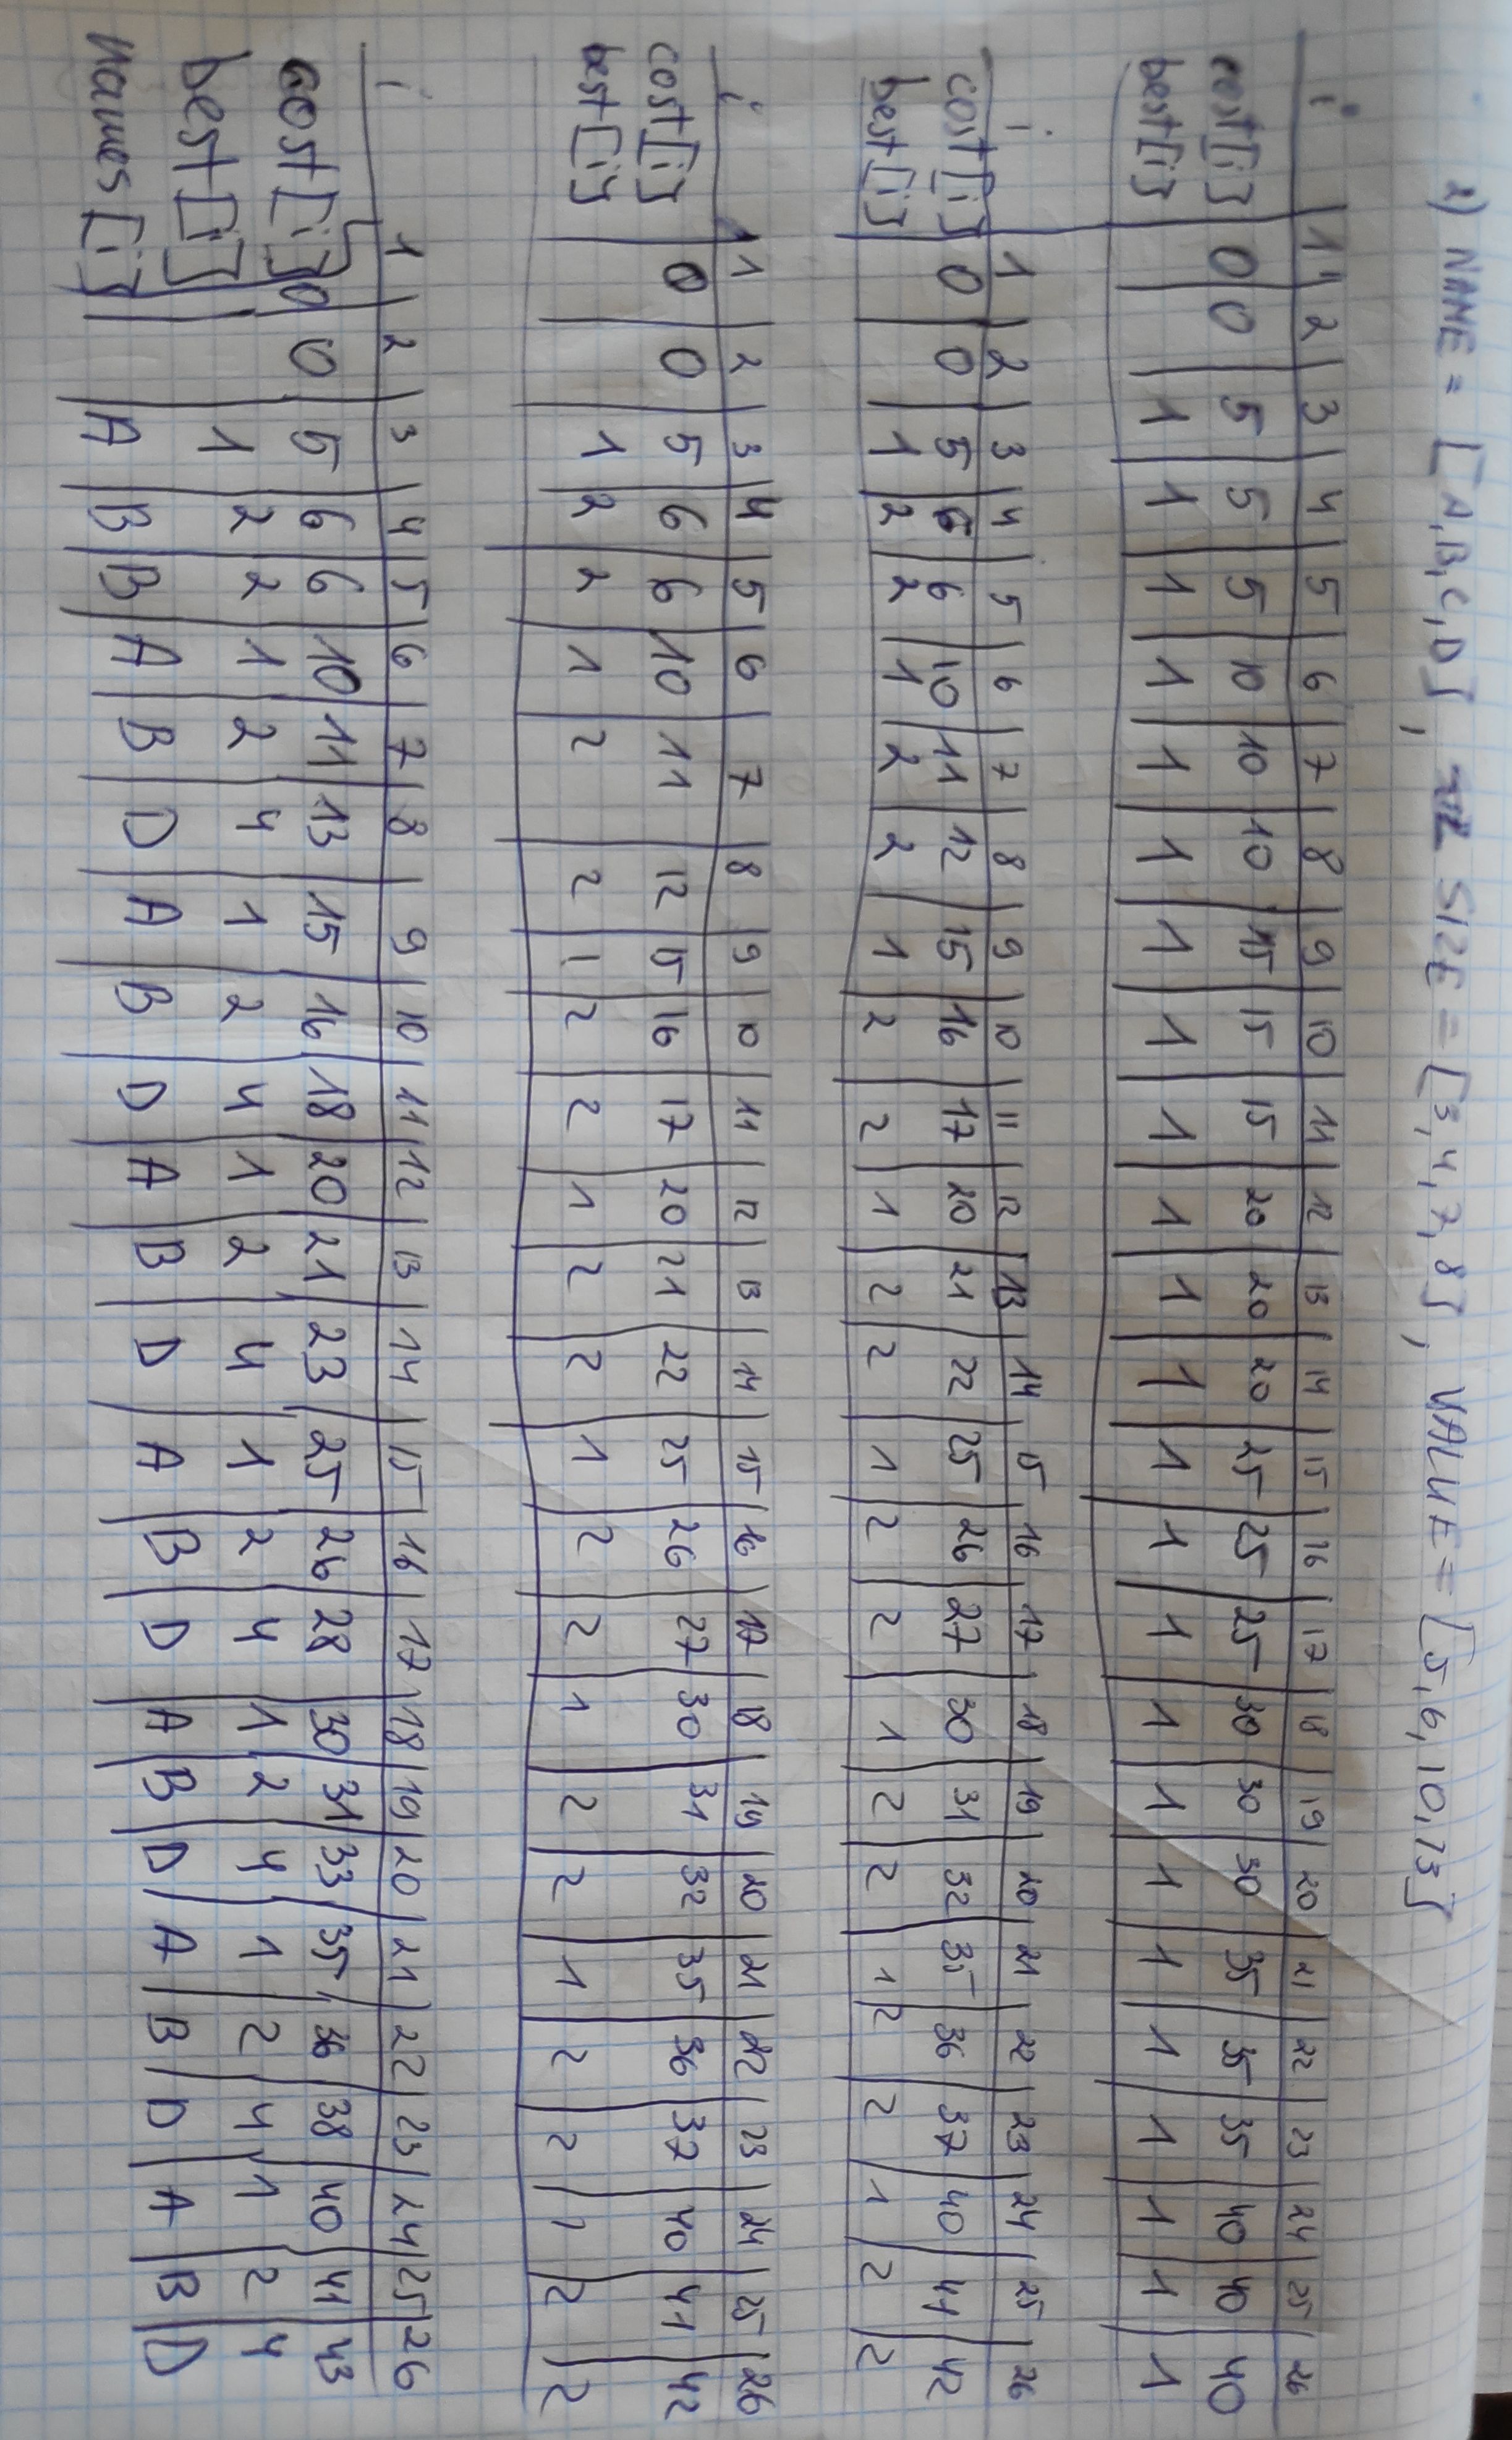 2) NAME = [A,B,C,D], SIZE = [3,4,7,8], VALUE = [5,6,10,13]
i 1 2 3 4 5 6 7 8 9 10 11 12 13 14 15 16 17 18 19 20 21 22 23 24 25 26
cost[i] 0 0 5 5 5 10 10 10 15 15 15 20 20 20 25 25 25 30 30 30 35 35 35 40 40 40
best[i] 1 1 1 1 1 1 1 1 1 1 1 1 1 1 1 1 1 1 1 1 1 1 1 1
i 1 2 3 4 5 6 7 8 9 10 11 12 13 14 15 16 17 18 19 20 21 22 23 24 25 26
cost[i] 0 0 5 6 6 10 11 12 15 16 17 20 21 22 25 26 27 30 31 32 35 36 37 40 41 42
best[i] 1 2 2 1 2 2 1 2 2 1 2 2 1 2 2 1 2 2 1 2 2 1 2 2
i 1 2 3 4 5 6 7 8 9 10 11 12 13 14 15 16 17 18 19 20 21 22 23 24 25 26
cost[i] 0 0 5 6 6 10 11 12 15 16 17 20 21 22 25 26 27 30 31 32 35 36 37 40 41 42
best[i] 1 2 2 1 2 2 1 2 2 1 2 2 1 2 2 1 2 2 1 2 2 1 2 2
i 1 2 3 4 5 6 7 8 9 10 11 12 13 14 15 16 17 18 19 20 21 22 23 24 25 26
cost[i] 0 0 5 6 6 10 11 13 15 16 18 20 21 23 25 26 28 30 31 33 35 36 38 40 41 43
best[i] 1 2 2 1 2 4 1 2 4 1 2 4 1 2 4 1 2 4 1 2 4 1 2 4
Names[i] A B B A B D A B D A B D A B D A B D A B D A B D